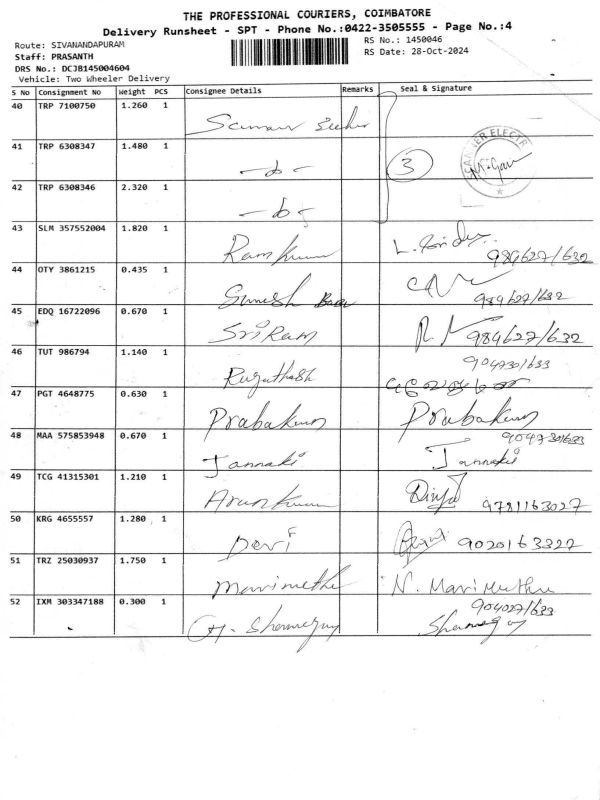 THE PROFESSIONAL COURIERS, COIMBATORE
Delivery Runsheet - SPT - Phone No.:0422-3505555 - Page No.:4
Route: SIVANANDAPURAM
RS No.: 1450046
Staff: PRASANTH
RS Date: 28-Oct-2024
DRS No.: DCJB145004604
Vehicle: Two Wheeler Delivery
S No Consignment No Weight PCS Consignee Details Remarks Seal & Signature
40 TRP 7100750 1.260 1
41 TRP 6308347 1.480 1 -do- 3
42 TRP 6308346 2.320 1 -do-
43 SLM 357552004 1.820 1 Ramkumar
989627/632
44 OTY 3861215 0.435 1 Suresh Babu
989627/632
45 EDQ 16722096 0.670 1 Sriram 984627/632
46 TUT 986794 1.140 1 904730/633
47 PGT 4648775 0.630 1 Prabakaran Prabakaran
48 MAA 575853948 0.670 1 Jannaki 904730/633
Jannaki
49 TCG 41315301 1.210 1 Arunkumar Divya 9781163027
50 KRG 4655557 1.280 1 Devi 9020163327
51 TRZ 25030937 1.750 1 Marimuthu N. Marimuthu
52 IXM 303347188 0.300 1 904027/633